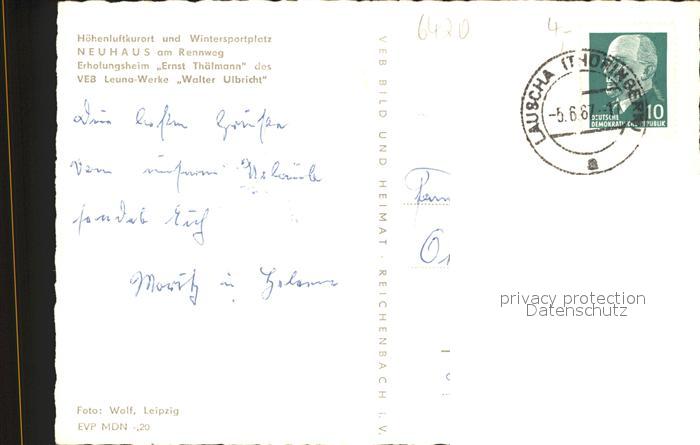 Höhenluftkurort und Wintersportplatz
NEUHAUS am Rennweg
Erholungsheim „Ernst Thälmann" des
VEB Leuna-Werke „Walter Ulbricht"
Die besten Grüße
von unserem Urlaub
sendet Euch
Moritz u. Helene
Foto: Wolf, Leipzig
EVP MDN -,20
VEB BILD UND HEIMAT · REICHENBACH i. V.
6420
4,-
LAUSCHA (THÜR
-5.6.67
a
10
DEUTSCHE
DEMOKRATISCHE REPUBLIK
Fam
privacy protection
Datenschutz